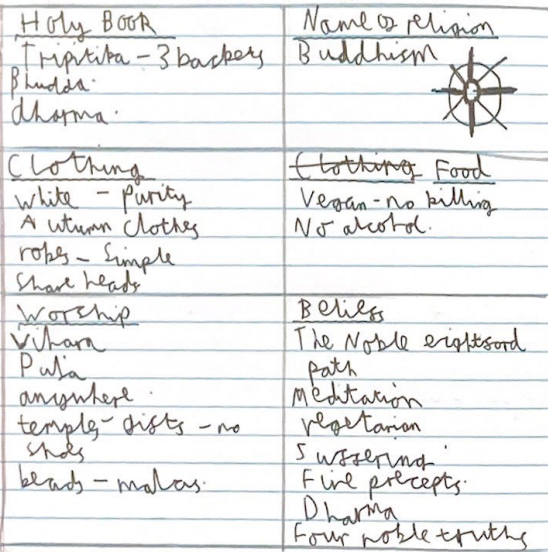 Holy Book
Tripitika - 3 baskets
Bhudda.
dharma.
Name of religion
Buddhism
Clothing
white - purity
Autumn clothes
robes - simple
shave heads
Clothing Food
Vegan - no killing
No alcohol.
Worship
Vihara
Puja
anywhere.
temple - gifts - no
shoes
beads - malas.
Beliefs
The Noble eightfold
path
Meditation
vegetarian
Suffering
Five precepts.
Dharma
Four noble truths